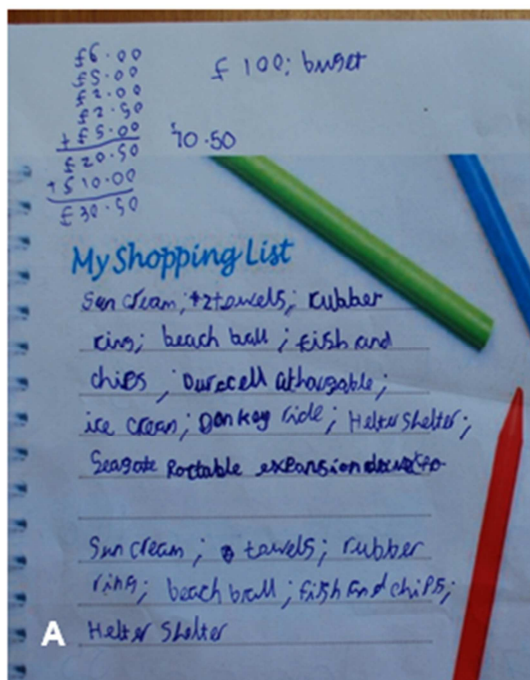 £6.00
£5.00
£2.00
£2.50
+ £5.00
£20.50
+ £10.00
£30.50
£100; buget
70.50
My Shopping List
Sun cream; +2 towels; rubber
ring; beach ball; fish and
chips; Duracell
ice cream; Donkey ride; Helter Shelter;
Seagate Portable expansion
Sun cream; towels; rubber
ring; beach ball; fish and chips;
Helter Shelter
A